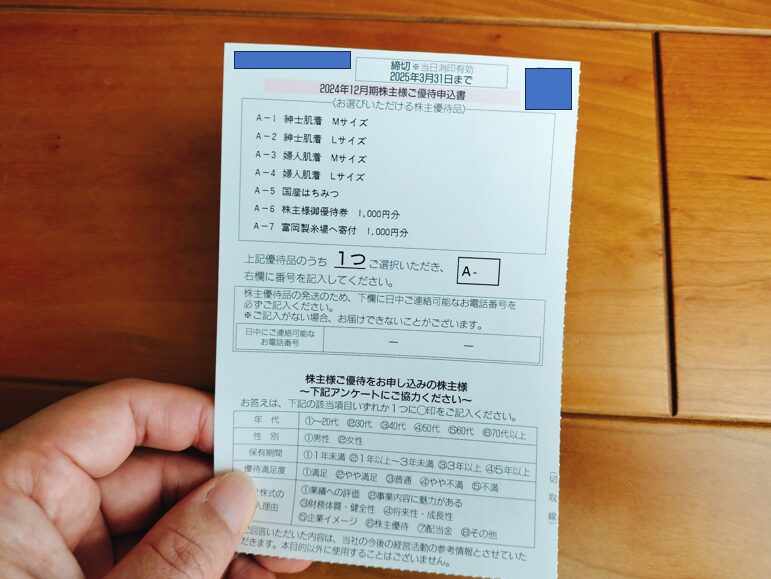 締切 ※当日消印有効
2025年3月31日まで
2024年12月期株主様ご優待申込書
(お選びいただける株主優待品)
A-1 紳士肌着 Mサイズ
A-2 紳士肌着 Lサイズ
A-3 婦人肌着 Mサイズ
A-4 婦人肌着 Lサイズ
A-5 国産はちみつ
A-6 株主様御優待券 1,000円分
A-7 富岡製糸場へ寄付 1,000円分
上記優待品のうち 1つ ご選択いただき、
右欄に番号を記入してください。
A-
株主優待品の発送のため、下欄に日中ご連絡可能なお電話番号を
必ずご記入ください。
※ご記入がない場合、お届けできないことがございます。
日中にご連絡可能な
お電話番号 ― ―
株主様ご優待をお申し込みの株主様
~下記アンケートにご協力ください~
お答えは、下記の該当項目いずれか1つに○印をご記入ください。
年代 ①~20代 ②30代 ③40代 ④50代 ⑤60代 ⑥70代以上
性別 ①男性 ②女性
保有期間 ①1年未満 ②1年以上~3年未満 ③3年以上 ④5年以上
優待満足度 ①満足 ②やや満足 ③普通 ④やや不満 ⑤不満
株式の
入理由
①業績への評価 ②事業内容に魅力がある
③財務体質・健全性 ④将来性・成長性
⑤企業イメージ ⑥株主優待 ⑦配当金 ⑧その他
ご回答いただいた内容は、当社の今後の経営活動の参考情報とさせていた
だきます。本目的以外に使用することはございません。
(切取線)